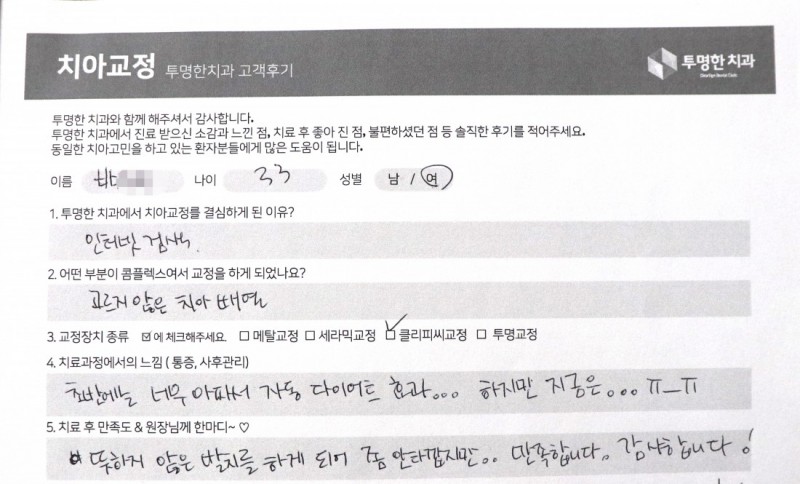 치아교정 투명한치과 고객후기
투명한 치과
투명한 치과와 함께 해주셔서 감사합니다.
투명한 치과에서 진료 받으신 소감과 느낀 점, 치료 후 좋아 진 점, 불편하셨던 점 등 솔직한 후기를 적어주세요.
동일한 치아고민을 하고 있는 환자분들에게 많은 도움이 됩니다.
이름 나이 33 성별 남 / 여
1. 투명한 치과에서 치아교정를 결심하게 된 이유?
인터넷 검색.
2. 어떤 부분이 콤플렉스여서 교정을 하게 되었나요?
고르지 않은 치아 배열
3. 교정장치 종류 ☑에 체크해주세요. □ 메탈교정 □ 세라믹교정 ☑ 클리피씨교정 □ 투명교정
4. 치료과정에서의 느낌 ( 통증, 사후관리)
초반에는 너무 아파서 자동 다이어트 효과... 하지만 지금은... ㅠ_ㅠ
5. 치료 후 만족도 & 원장님께 한마디~ ♡
뜻하지 않은 발치를 하게 되어 좀 안타깝지만.. 만족합니다. 감사합니다!